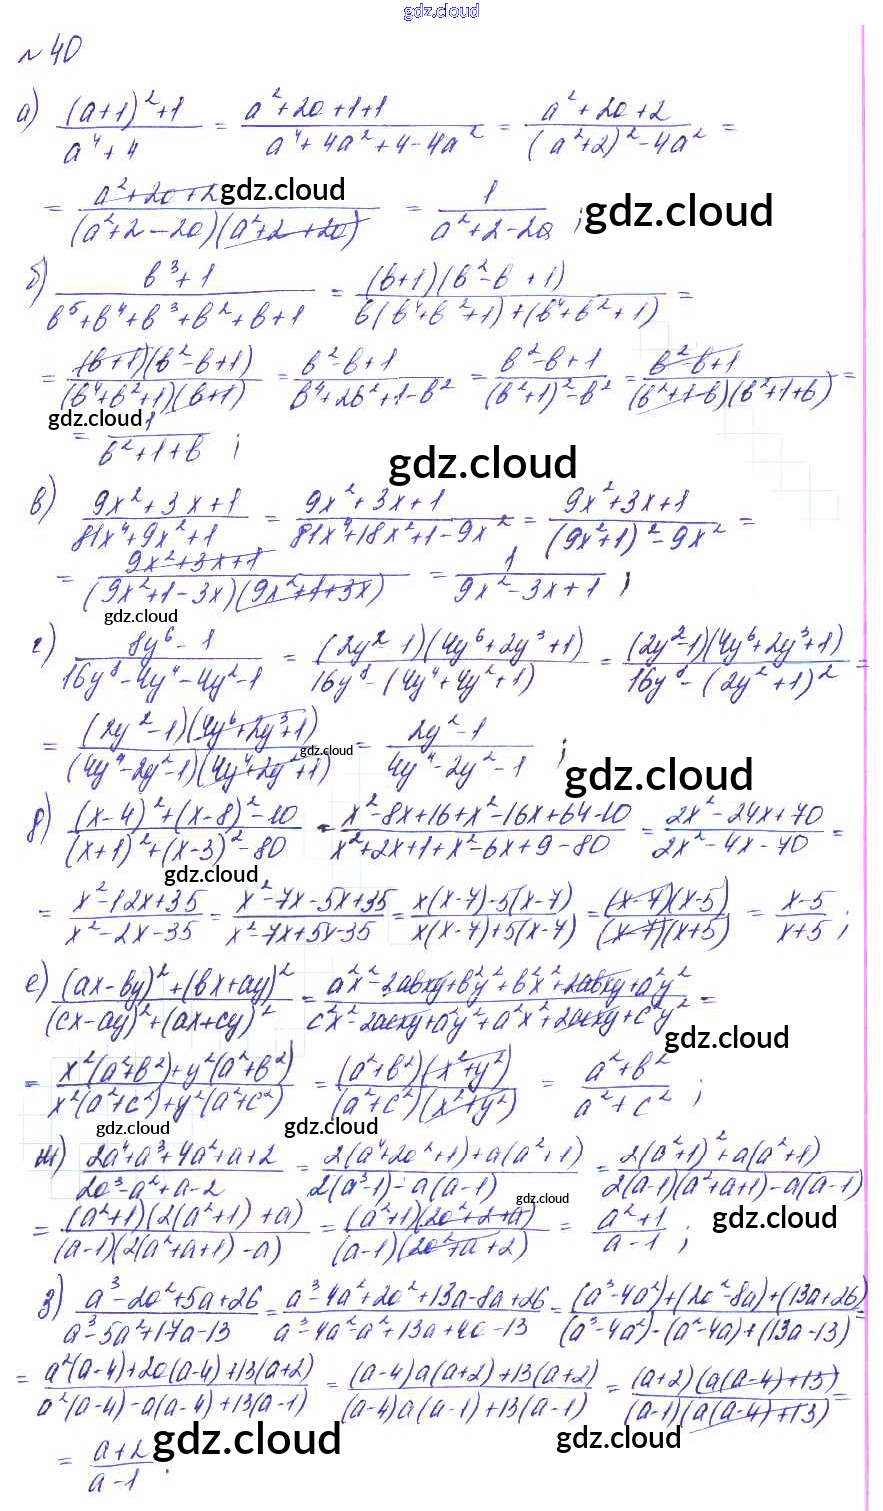 gdz.cloud
№ 40
а) ((a+1)²+1)/(a⁴+4) = (a²+2a+1+1)/(a⁴+4a²+4-4a²) = (a²+2a+2)/((a²+2)²-4a²) =
= (a²+2a+2)/((a²+2-2a)(a²+2+2a)) = 1/(a²+2-2a) ;
gdz.cloud gdz.cloud
б) (b³+1)/(b⁵+b⁴+b³+b²+b+1) = ((b+1)(b²-b+1))/(b(b⁴+b²+1)+(b⁴+b²+1)) =
= ((b+1)(b²-b+1))/((b⁴+b²+1)(b+1)) = (b²-b+1)/(b⁴+2b²+1-b²) = (b²-b+1)/((b²+1)²-b²) = (b²-b+1)/((b²+1-b)(b²+1+b)) =
gdz.cloud
= 1/(b²+1+b) ;
gdz.cloud
в) (9x²+3x+1)/(81x⁴+9x²+1) = (9x²+3x+1)/(81x⁴+18x²+1-9x²) = (9x²+3x+1)/((9x²+1)²-9x²) =
= (9x²+3x+1)/((9x²+1-3x)(9x²+1+3x)) = 1/(9x²-3x+1) ;
gdz.cloud
г) (8y⁶-1)/(16y⁸-4y⁴-4y²-1) = ((2y²-1)(4y⁶+2y³+1))/(16y⁸-(4y⁴+4y²+1)) = ((2y²-1)(4y⁶+2y³+1))/(16y⁸-(2y²+1)²) =
= ((2y²-1)(4y⁶+2y³+1))/((4y⁴-2y²-1)(4y⁴+2y²+1)) = (2y²-1)/(4y⁴-2y²-1) ;
gdz.cloud gdz.cloud
д) ((x-4)²+(x-8)²-10)/((x+1)²+(x-3)²-80) = (x²-8x+16+x²-16x+64-10)/(x²+2x+1+x²-6x+9-80) = (2x²-24x+70)/(2x²-4x-70) =
gdz.cloud
= (x²-12x+35)/(x²-2x-35) = (x²-7x-5x+35)/(x²-7x+5x-35) = (x(x-7)-5(x-7))/(x(x-7)+5(x-7)) = ((x-7)(x-5))/((x-7)(x+5)) = (x-5)/(x+5) ;
е) ((ax-by)²+(bx+ay)²)/((cx-ay)²+(ax+cy)²) = (a²x²-2abxy+b²y²+b²x²+2abxy+a²y²)/(c²x²-2acxy+a²y²+a²x²+2acxy+c²y²) =
gdz.cloud
= (x²(a²+b²)+y²(a²+b²))/(x²(a²+c²)+y²(a²+c²)) = ((a²+b²)(x²+y²))/((a²+c²)(x²+y²)) = (a²+b²)/(a²+c²) ;
gdz.cloud gdz.cloud
ж) (2a⁴+a³+4a²+a+2)/(2a³-a²+a-2) = (2(a⁴+2a²+1)+a(a²+1))/(2(a³-1)-a(a-1)) = (2(a²+1)²+a(a²+1))/(2(a-1)(a²+a+1)-a(a-1))
gdz.cloud
= ((a²+1)(2(a²+1)+a))/((a-1)(2(a²+a+1)-a)) = ((a²+1)(2a²+2+a))/((a-1)(2a²+a+2)) = (a²+1)/(a-1) ;
gdz.cloud
з) (a³-2a²+5a+26)/(a³-5a²+17a-13) = (a³-4a²+2a²+13a-8a+26)/(a³-4a²-a²+13a+4a-13) = ((a³-4a²)+(2a²-8a)+(13a+26))/((a³-4a²)-(a²-4a)+(13a-13)) =
= (a²(a-4)+2a(a-4)+13(a+2))/(a²(a-4)-a(a-4)+13(a-1)) = ((a-4)a(a+2)+13(a+2))/((a-4)a(a-1)+13(a-1)) = ((a+2)(a(a-4)+13))/((a-1)(a(a-4)+13)) =
= (a+2)/(a-1) .
gdz.cloud gdz.cloud